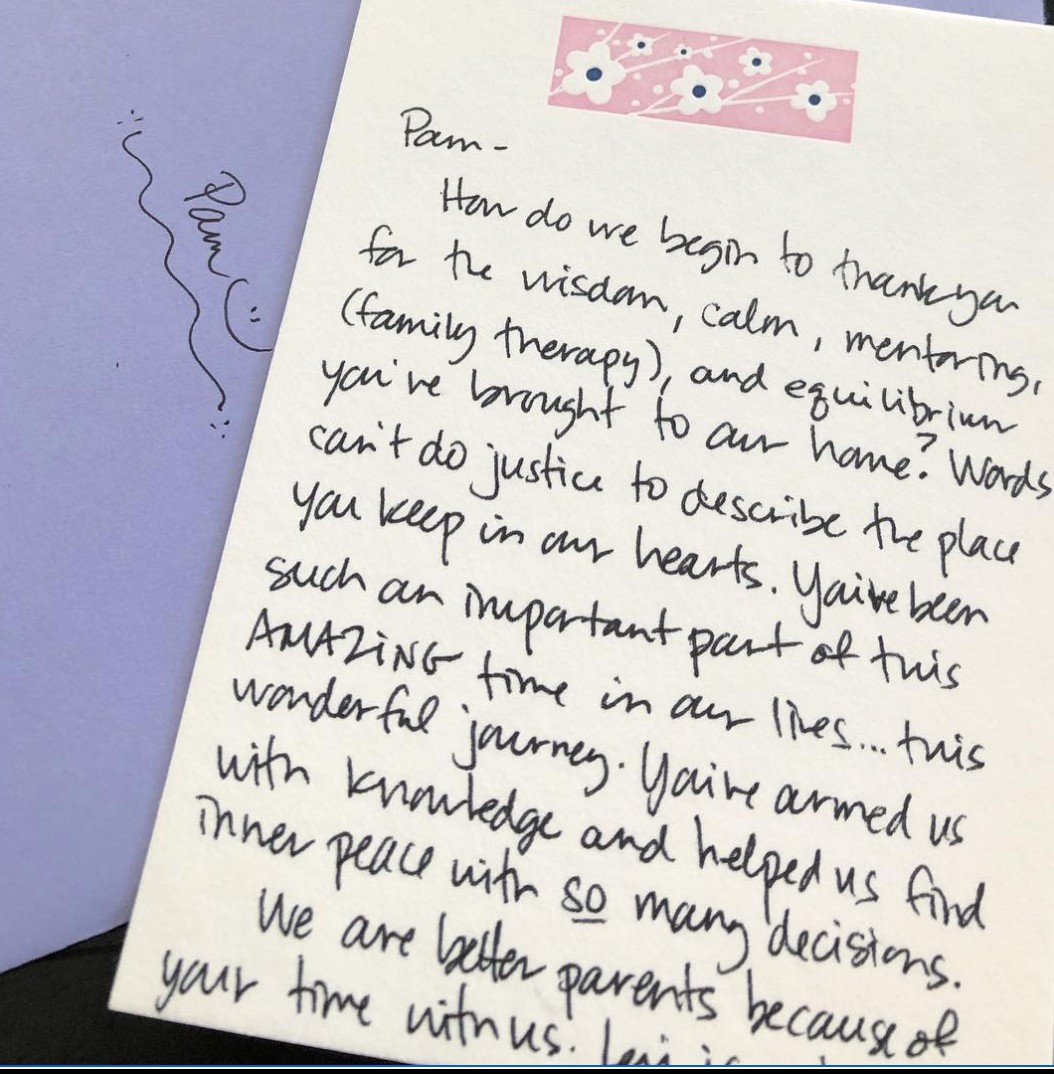 Pam
Pam -
How do we begin to thank you
for the wisdom, calm, mentoring,
(family therapy), and equilibrium
you've brought to our home? Words
can't do justice to describe the place
you keep in our hearts. You've been
such an important part of this
AMAZING time in our lives... this
wonderful journey. You've armed us
with knowledge and helped us find
inner peace with so many decisions.
We are better parents because of
your time with us.